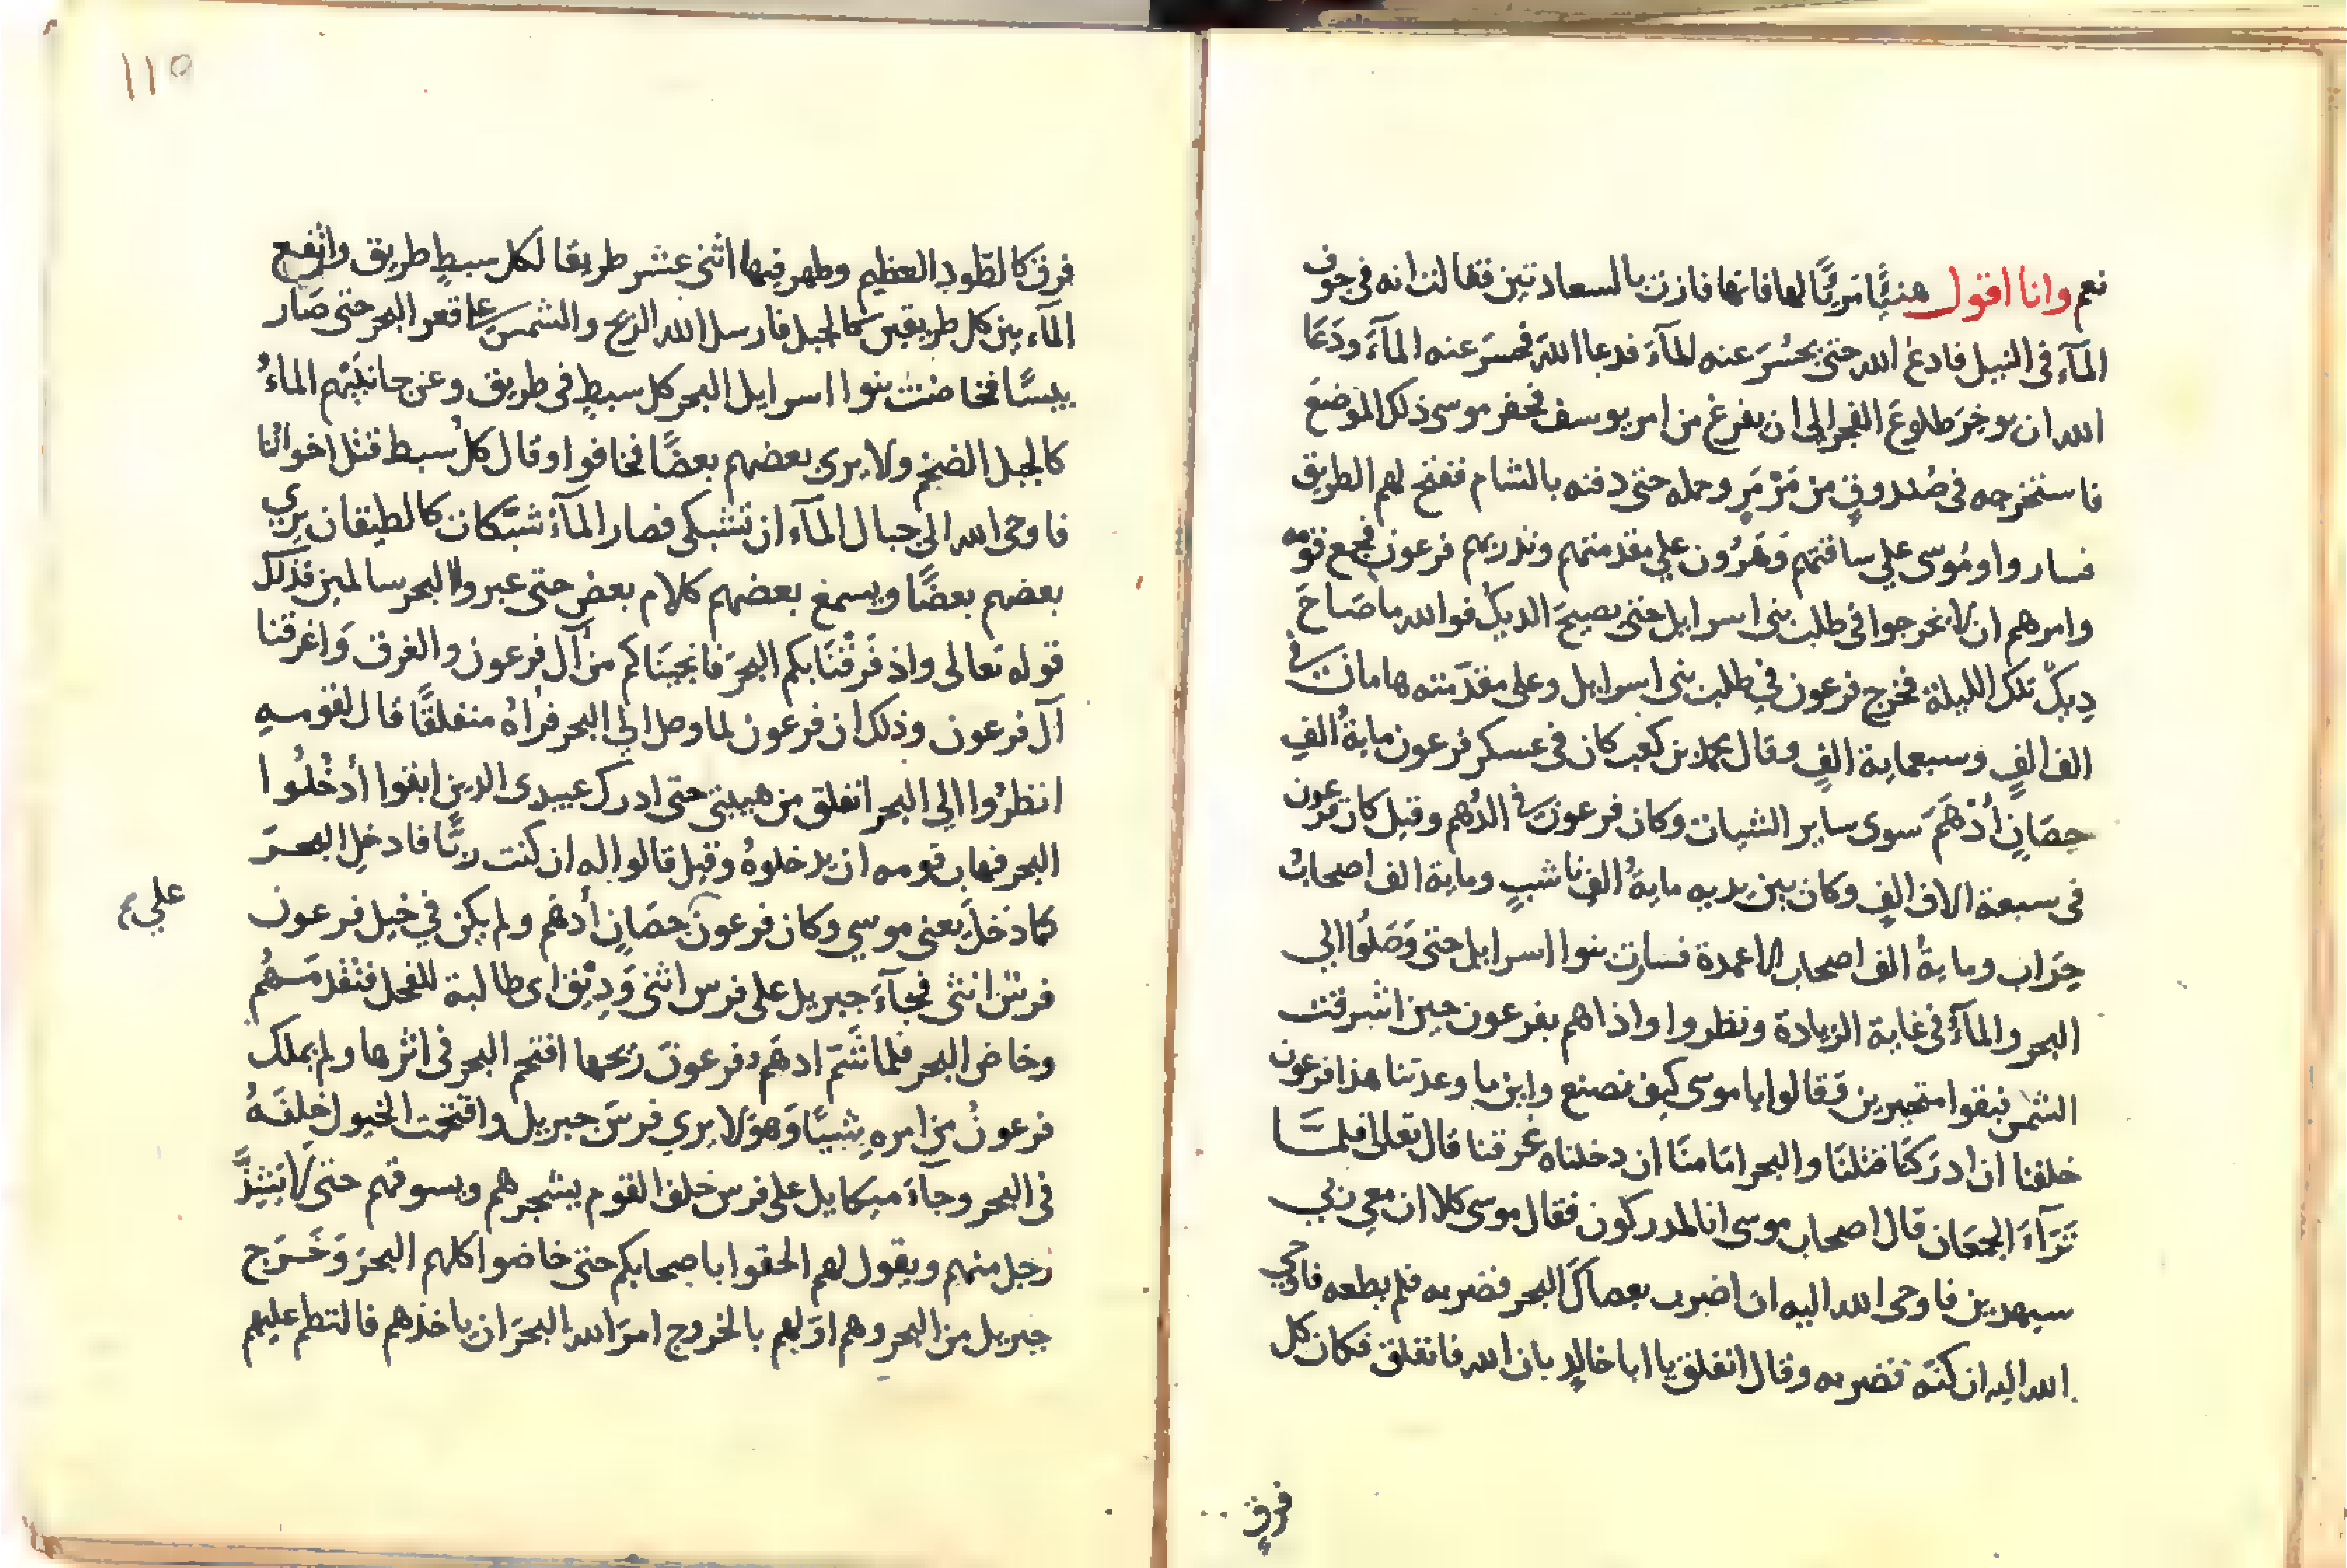 نعم وانا اقول هنيًّا مَرِيًّا لها فانها فازت بالسعادتين فقالت انه في جوف
المآء في النيل فادعُ الله حتى يحسُرَ عنه المآءَ فدعا اللهَ فحسَرَ عنه المآءَ ودَعَا
الله ان يوخِرَ طلوعَ الفجر الى ان يفرغ من امر يوسف فحفر موسى ذلك الموضعَ
فاستخرجه في صُندوقٍ من مَرْمَرٍ وحمله حتى دفنه بالشام ففتح لهم الطريق
فساروا وموسى علي ساقتهم وَهَرُون علي مقدمتهم ونذر بهم فرعون فجمع قومه
وامرهم ان لا يخرجوا في طلب بني اسرايل حتى يصيحَ الديكُ فوالله ما صَاحَ
دِيكٌ تلك الليلة فخرج فرعون في طلب بني اسرايل وعلى مقدّمته هامان في
الف الفٍ وسبعماية الفٍ وقال محمد بن كعب كان في عسكر فرعون مايةُ الفِ
حِصَانٍ أدْهَمَ سوى ساير الشيات وكان فرعون في الدُهم وقيل كان فرعون
في سبعة الاف الفٍ وكان بين يديه مايةُ الفِ ناشبٍ وماية الف اصحابُ
حِرَاب ومايةُ الف اصحاب الاعمدة فسارت بنوا اسرايل حتى وَصَلُوا الي
البحر والمآءُ في غاية الزيادة ونظروا واذا هم بفرعون حين اشرقت
الشمس فبقوا متحيرين فقالوا يا موسى كيف نصنع واين ما وعدتنا هذا فرعون
خلفنا ان ادرَكَنا قتلنَا والبحر امَامنَا ان دخلناه غَرقنا قال تعالى فلمَّا
تَرَآءَ الجمعَان قال اصحاب موسى انا لمدركون فقال موسى كلا ان معي ربي
سيهدين فاوحى الله اليه ان اضرب بعصاكَ البحر فضربه فلم يطعه فاوحي
الله اليه ان كَنِّه فضربه وقال انفلق يا ابا خالدٍ باذن الله فانفلق فكان كل
فرقٍ
١١٥
فرق كالطَودِ العظيم وظهر فيها اثنى عشر طريقا لكل سبطٍ طريق وارتفع
المآء بين كل طريقين كالجبل فارسل الله الريح والشمس على قعر البحر حتى صَار
يبسًا فخاضت بنوا اسرايل البحر كل سبطٍ في طريق وعن جانبَيْهم الماءُ
كالجبل الضخم ولا يرى بعضهم بعضًا فخافوا وقال كلُ سبط قتل اخواننا
فاوحى الله الي جبال المآء ان تشبكى فصار المآءُ شبَّكات كالطيقان يري
بعضهم بعضًا ويسمعُ بعضهم كلام بعضٍ حتى عبروا البحر سالمين فذلك
قوله تعالى واذ فَرَقْنَا بكم البحرَ فانجينَاكم من آل فرعون والغرق وَاغرقنا
آل فرعون وذلك ان فرعون لما وصل الي البحر فراهُ منفلقًا قال لقومهِ
انظُروا الي البحر انفلق من هيبتي حتى ادرك عبيدي الذين ابقوا أدخُلُوا
البحر فهاب قومه ان يدخلوهُ وقيل قالوا له ان كنت ربًّا فادخلِ البحرَ
كما دَخلَ يعني موسي وكان فرعون حصَانٍ أدهم ولم يكن في خيل فرعون
علي
فرسٌ انثى فجآءَ جبريل على فرس انثى وَدِيْقٍ اى طالبة للفحل فتقدمَهُم
وخاض البحر فلما شَمّ ادهَمُ فرعونَ ريحها اقتحم البحر في اثرها ولم يملك
فرعونُ من امرهِ شيئًا وَهوَ لا يري فرسَ جبريل واقتحمت الخيول خلفَهُ
في البحر وجآءَ ميكايل على فرس خلف القوم يشجرهم ويسوقهم حتى لا يَشُذَّ
رجل منهم ويقول لهم الحقوا باصحابكم حتى خاضوا كلهم البحرَ وَخَرَج
جبريل من البحر وهم اوّلهم بالخروج امرَ الله البحرَ ان ياخذهم فالتطم عليهم